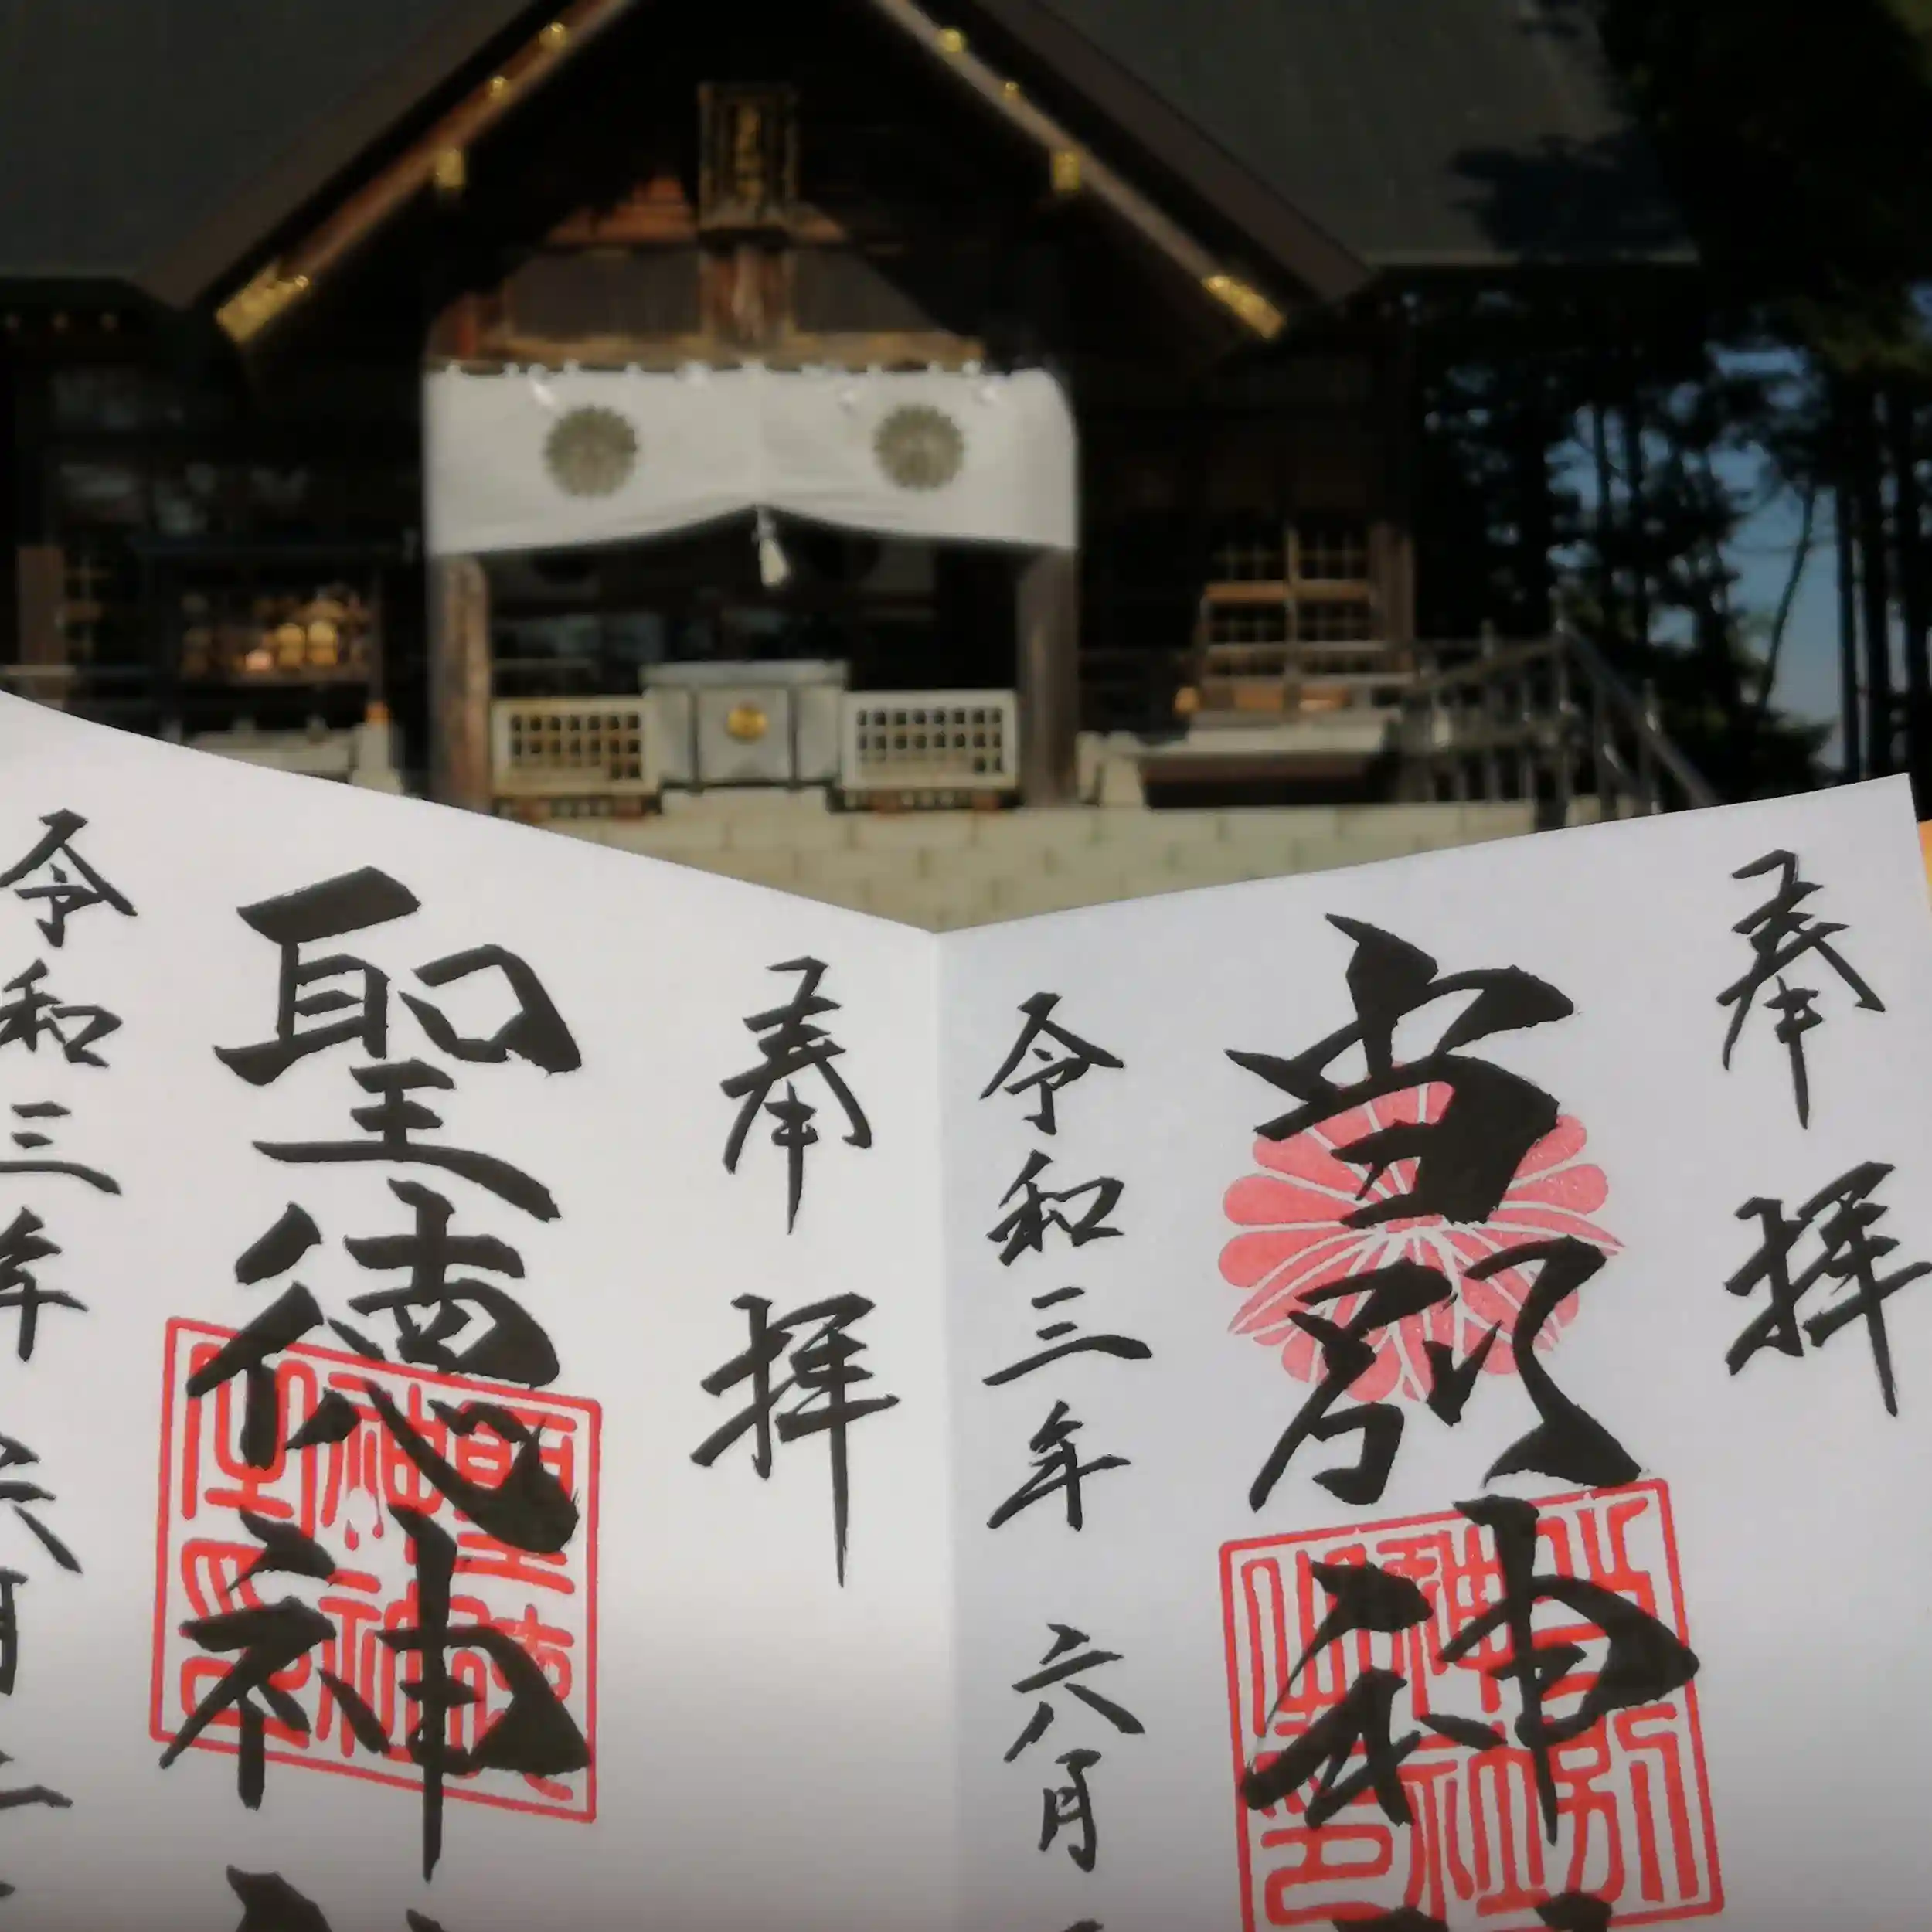 奉拝
当別神
令和三年 六月
奉拝
聖徳神
令和三年 六月二